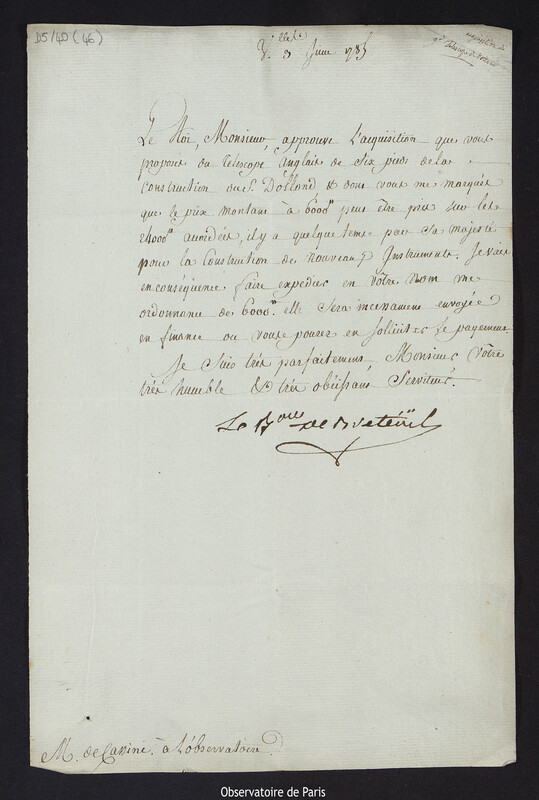 D5/40 (46)
V. 3 Juin 1785
Le Roi, Monsieur, approuve l'acquisition que vous
proposés du telescope anglais de six pieds de la
Construction du S. Dollond, & dont vous me marqués
que le prix montant à 6000tt peut être pris sur les
24000tt accordées, il y a quelque tems par Sa Majesté
pour la Construction de nouveaux Instrumens. Je vais
en conséquence faire expedier en votre nom une
ordonnance de 6000tt. elle sera incessament envoyée
en finance ou vous pourez en solliciter le payement.
Je suis très parfaitement, Monsieur, votre
très humble & très obéissant Serviteur.
Le Bon de Breteüil
M. de Cassini. à l'observatoire.
Observatoire de Paris